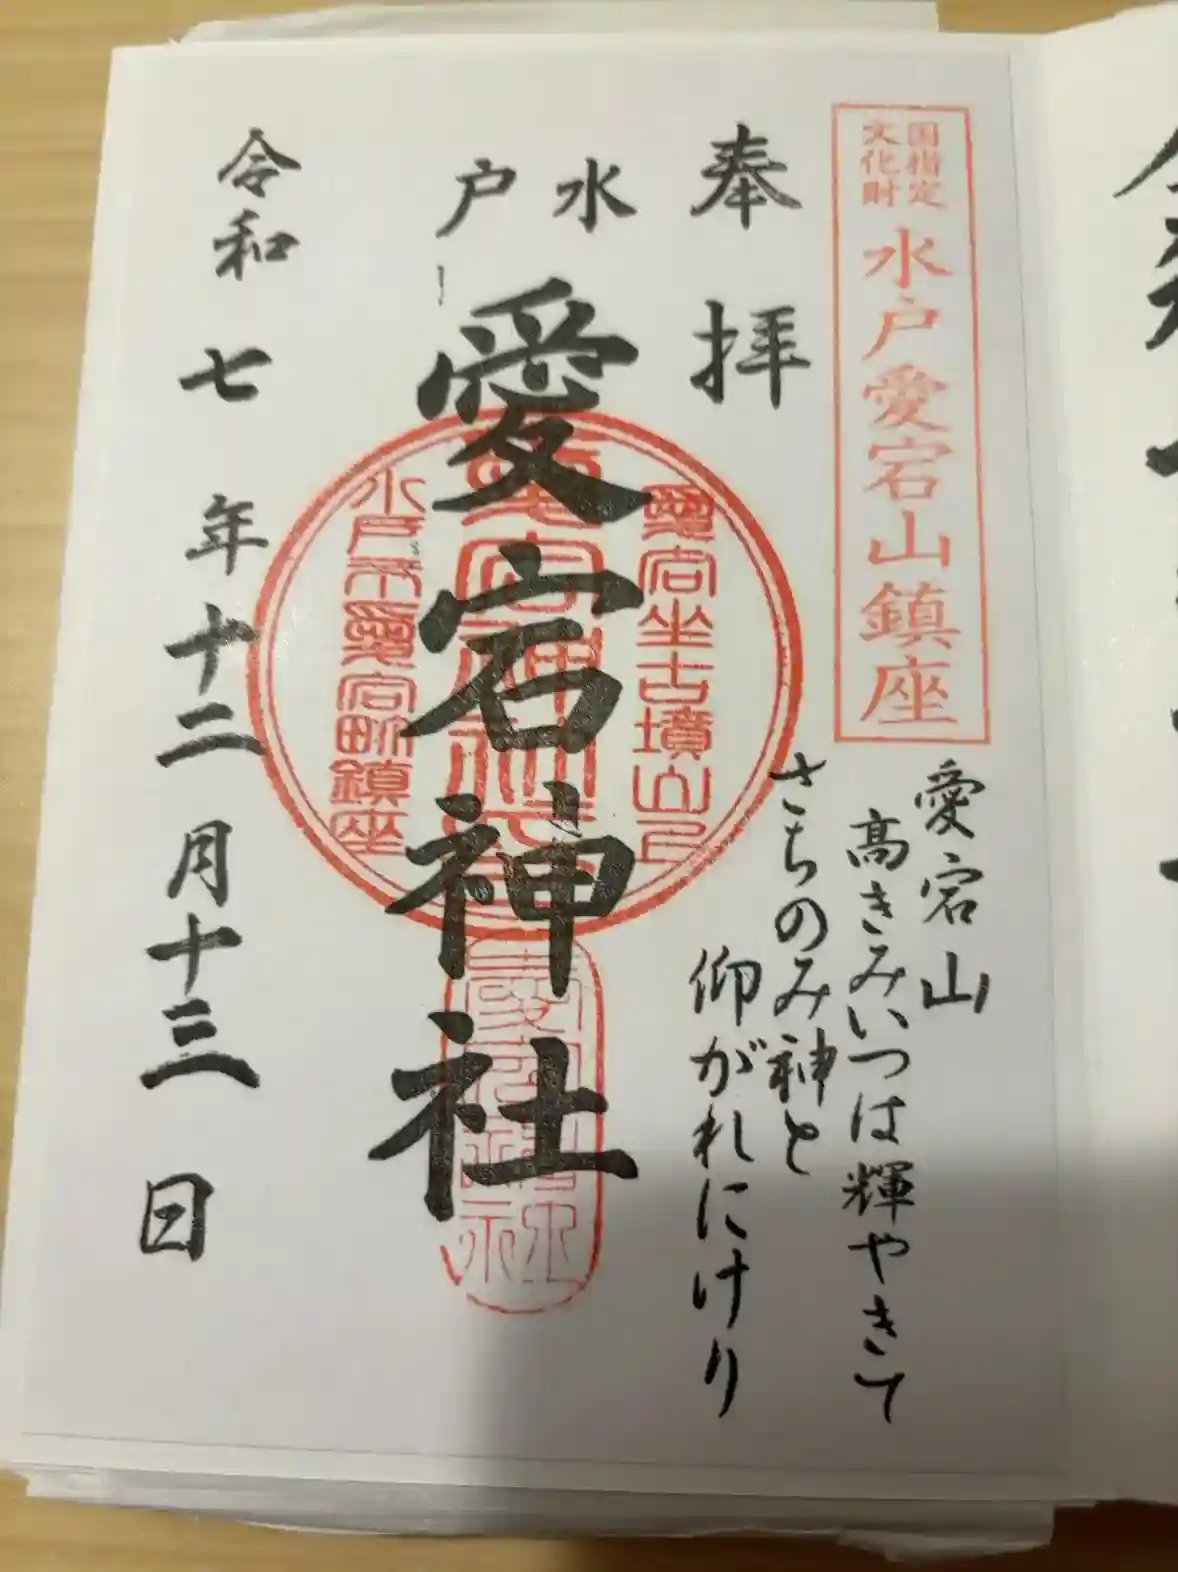 国指定
文化財
水戸愛宕山鎮座
愛宕山
高きみいつは輝やきて
さちのみ神と
仰がれにけり
奉拝
水戸
愛宕神社
愛宕坐古墳山
水戸市愛宕町鎮座
令和七年十二月十三日